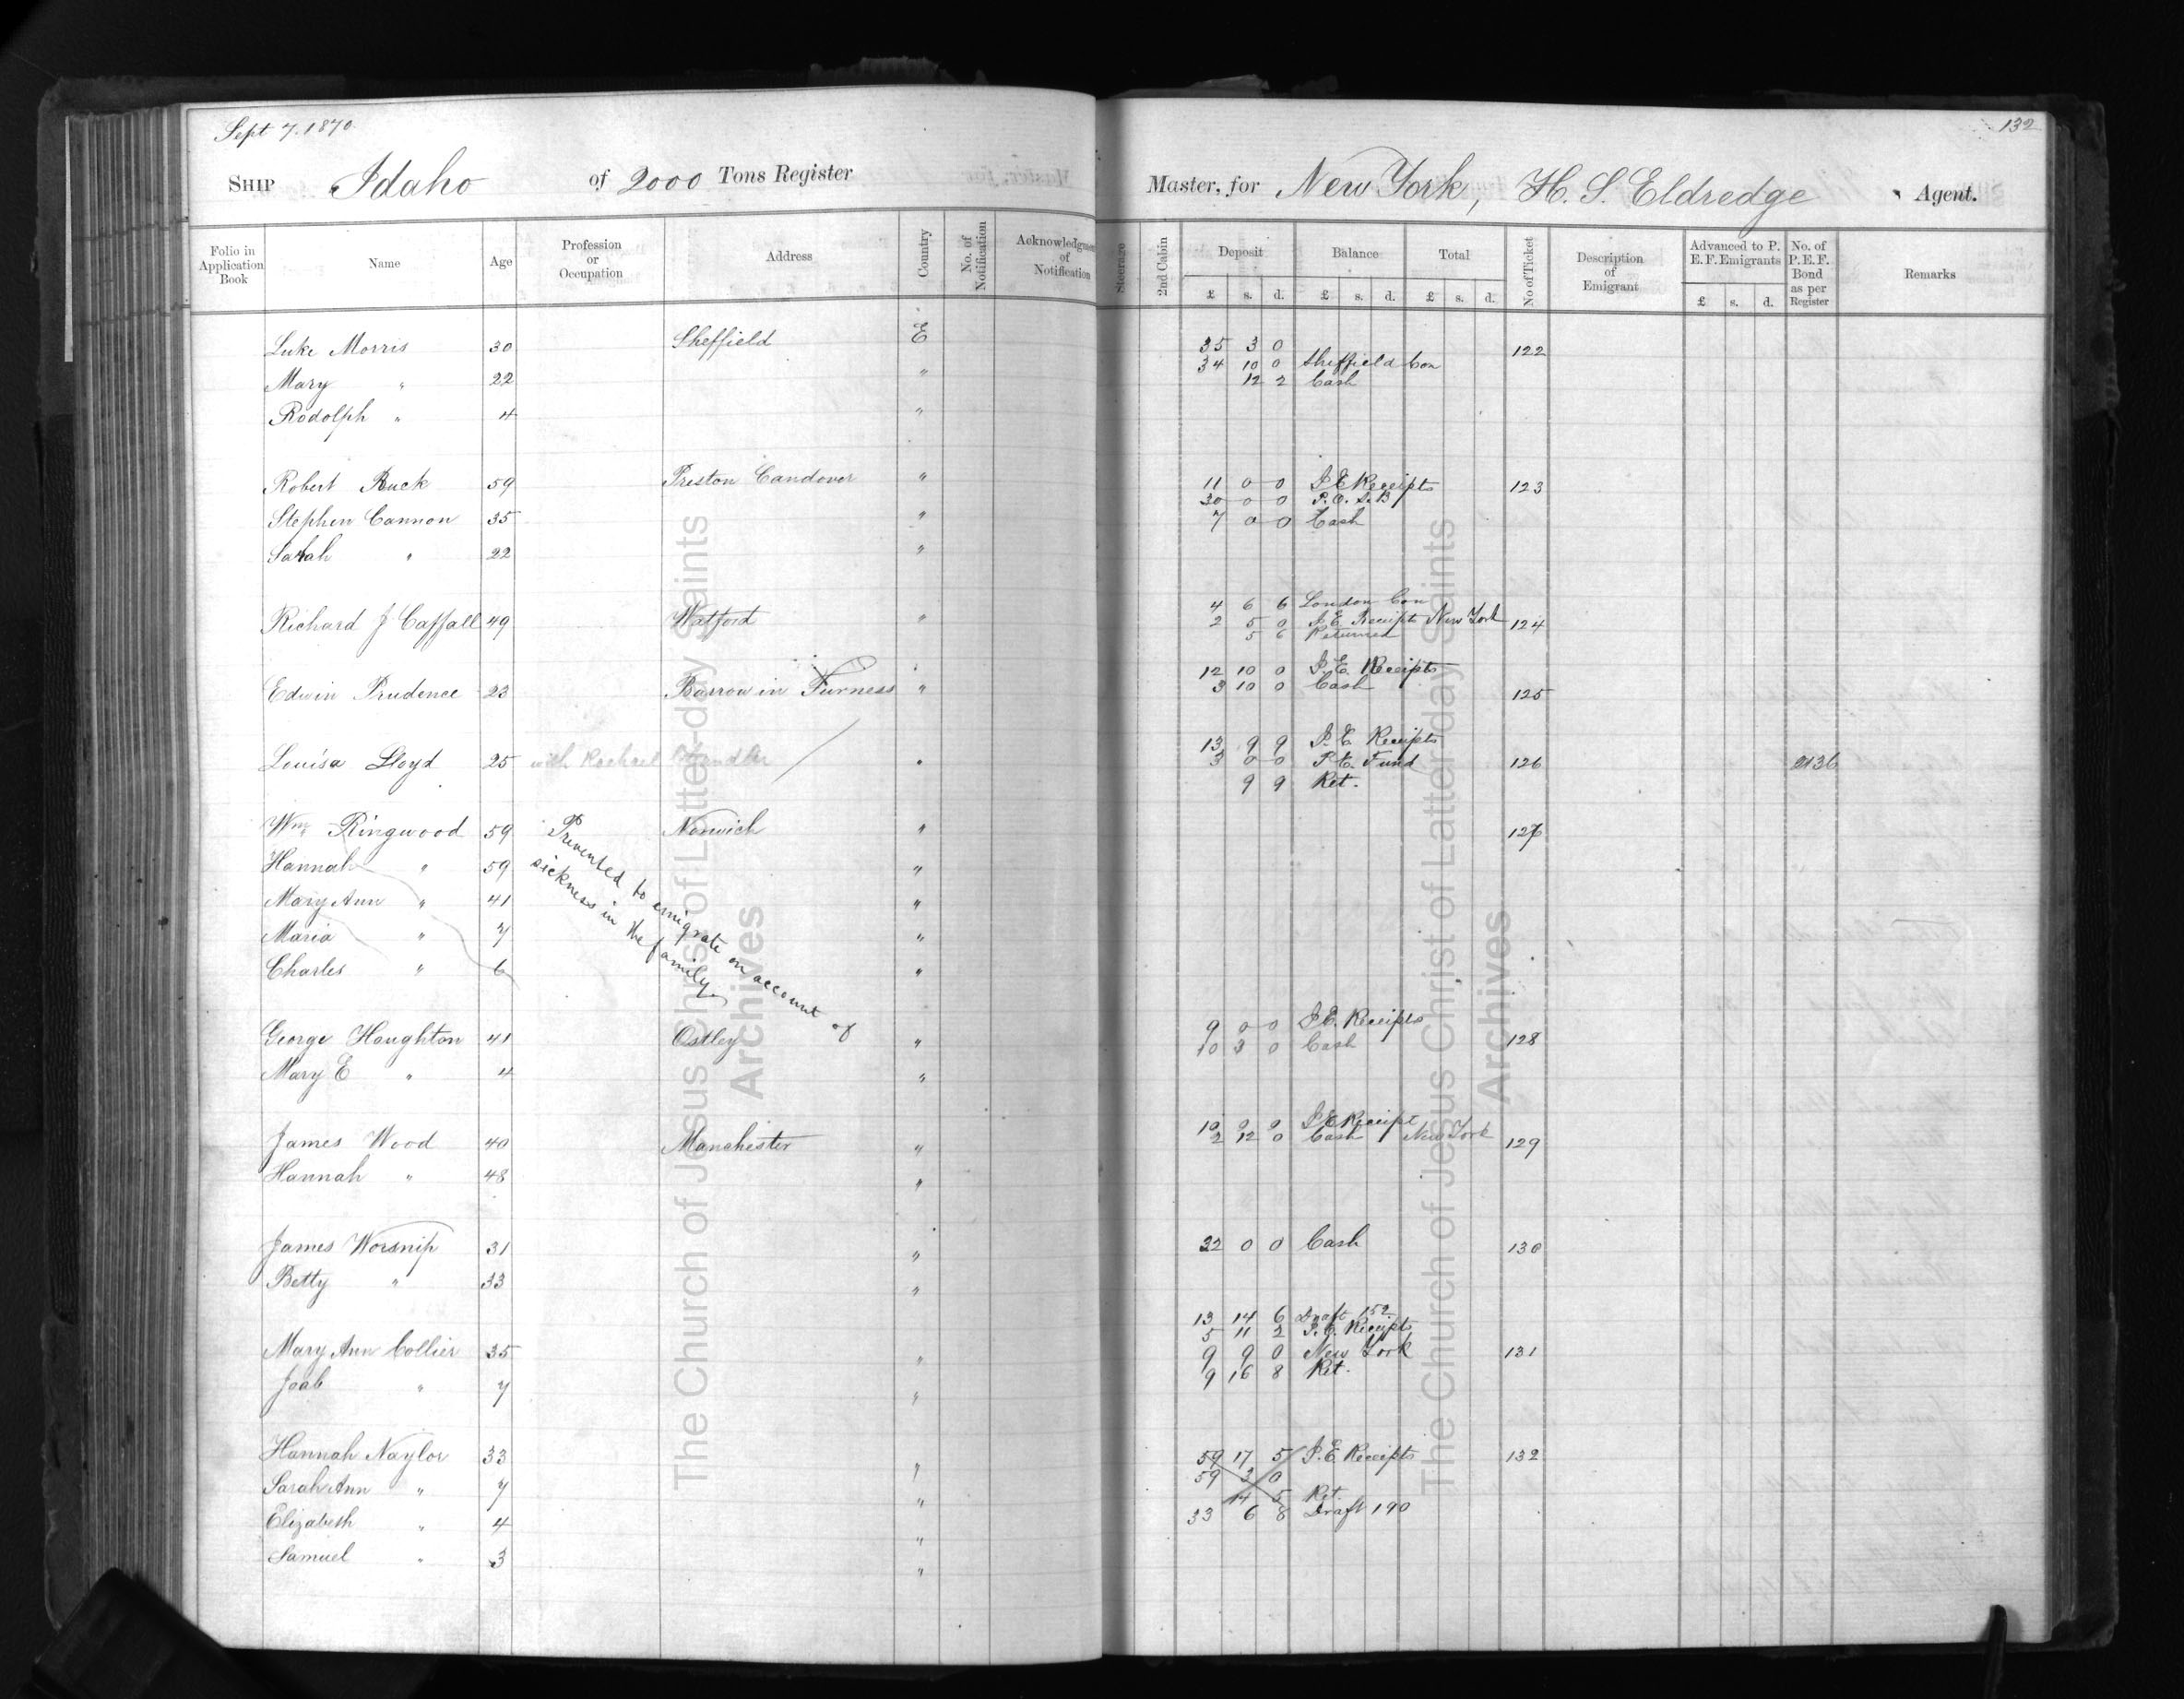 Sept 7. 1870
132
Ship Idaho of 2000 Tons Register Master, for New York, H. S. Eldredge Agent.
Folio in Application Book Name Age Profession or Occupation Address Country No. of Notification Acknowledgment of Notification Steerage 2nd Cabin Deposit Balance Total No of Ticket Description of Emigrant Advanced to P. E. F. Emigrants No. of P. E. F. Bond as per Register Remarks
£ s. d. £ s. d. £ s. d. £ s. d.
Luke Morris 30 Sheffield E 35 3 0 122
34 10 0 Sheffield Con
Mary " 22 " 12 2 Cash
Rodolph " 4 "
Robert Buck 59 Preston Candover " 11 0 0 I E Receipts 123
30 0 0 P. O. S. B
Stephen Cannon 35 " 7 0 0 Cash
Sarah " 22 "
4 6 6 London Con
Richard J Caffall 49 Watford " 2 5 0 I. E. Receipt New York 124
5 6 Returned
12 10 0 I. E. Receipts
Edwin Prudence 23 Barrow in Furness " 3 10 0 Cash 125
13 9 9 I. E. Receipts
Louisa Lloyd 25 with Rachael " 3 0 0 P. E. Fund 126 2136
9 9 Ret.
Wm Ringwood 59 Norwich " 127
Prevented to emigrate on account of
sickness in the family.
Hannah " 59 "
Mary Ann " 41 "
Maria " 7 "
Charles " 6 "
9 0 0 I E. Receipts
George Houghton 41 Ostley " 10 3 0 Cash 128
Mary E " 4 "
10 0 0 I E Receipt
James Wood 40 Manchester " 2 12 0 Cash New York 129
Hannah " 48 "
James Worsnip 31 " 32 0 0 Cash 130
Betty " 33 "
13 14 6 Draft 152
5 11 2 I. E. Receipts
Mary Ann Collier 35 " 9 9 0 New York 131
9 16 8 Ret.
Joab " 7 "
Hannah Naylor 33 " 59 17 5 I. E Receipts 132
59 3 0
Sarah Ann " 7 " 14 5 Ret.
Elizabeth " 4 " 33 6 8 Draft 190
Samuel " 3 "
The Church of Jesus Christ of Latter-day Saints
Archives
The Church of Jesus Christ of Latter-day Saints
Archives